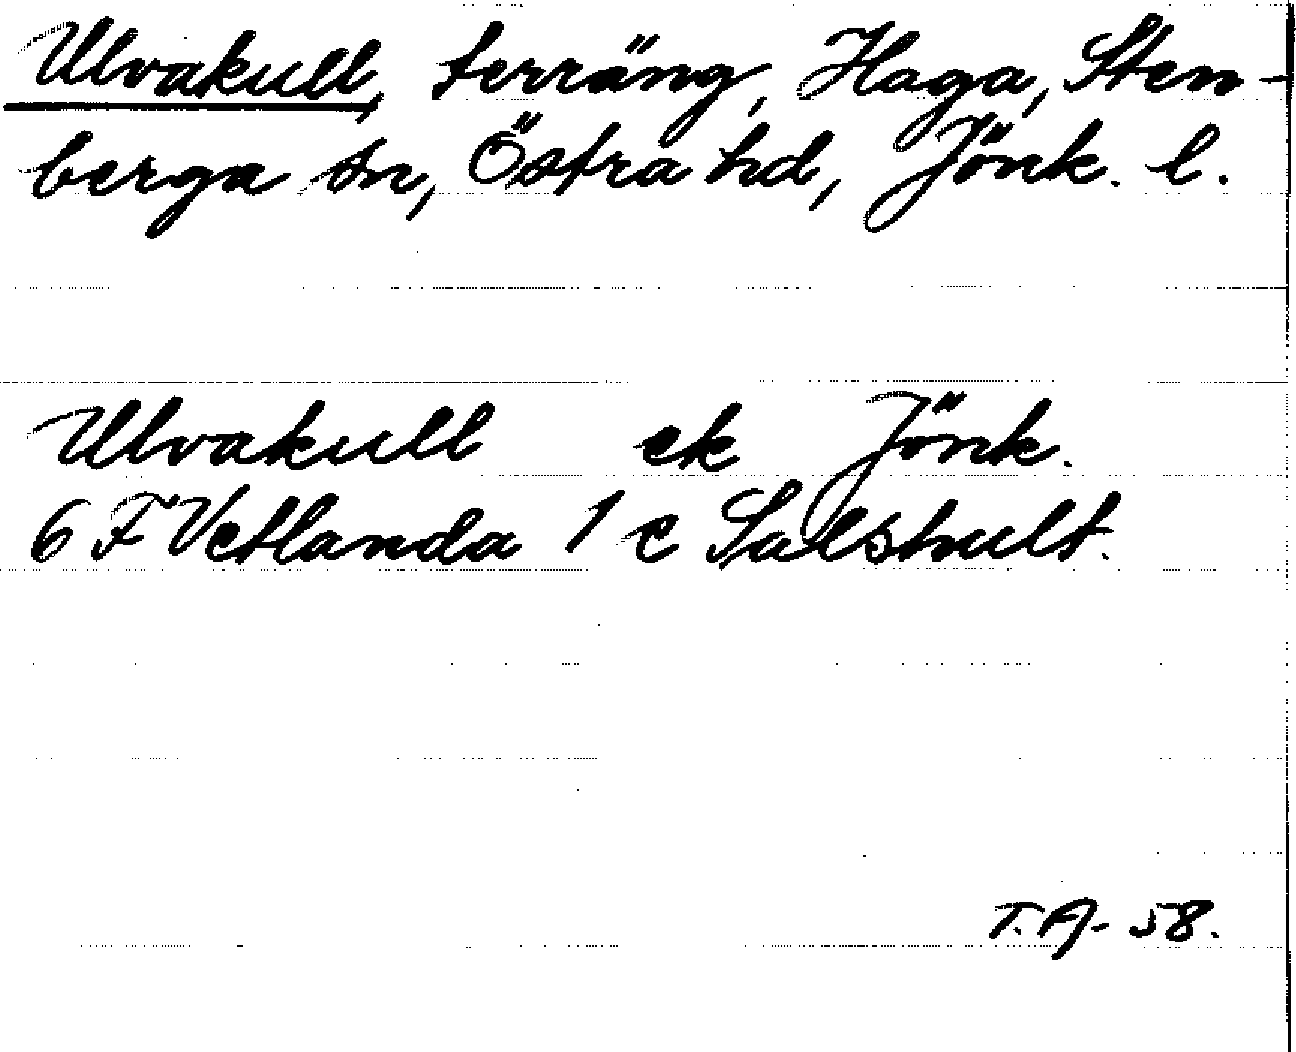 Ulvakull, terräng, Haga, Sten-
berga sn, Östra hd, Jönk. l.
Ulvakull ek Jönk.
6 F Vetlanda 1 c Salshult.
T.A-58.